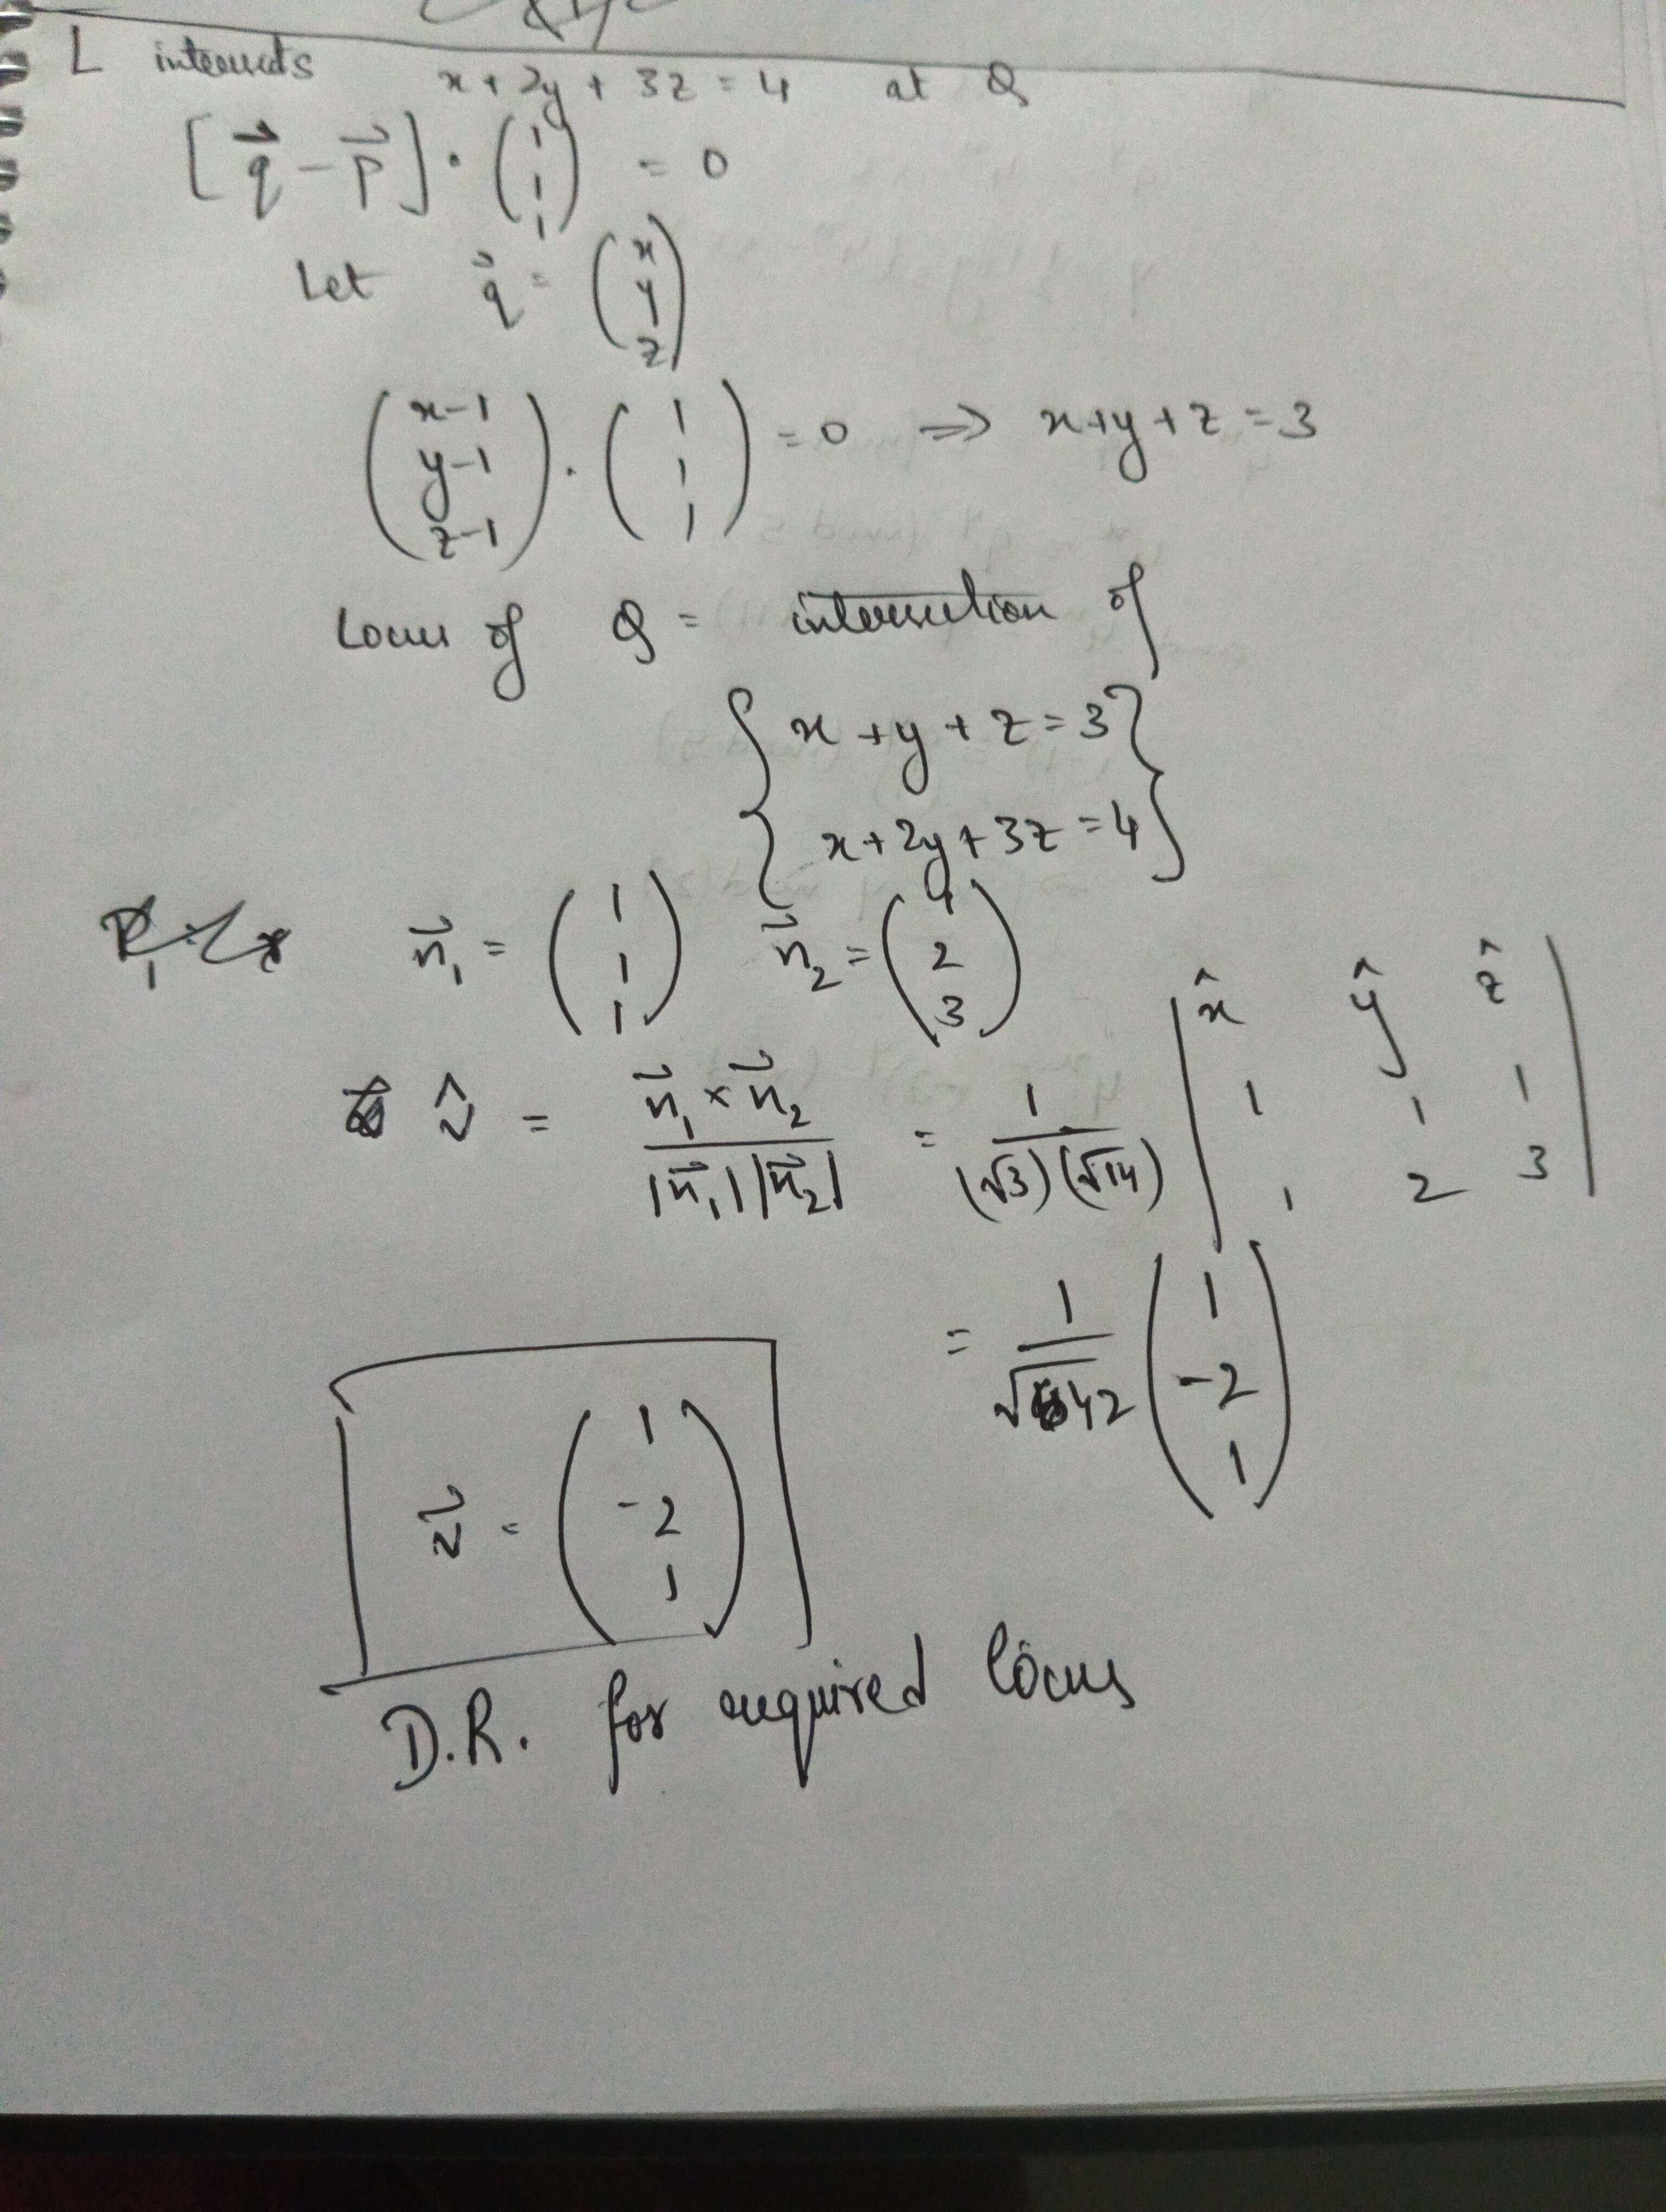 L intersects x + 2y + 3z = 4 at Q
[q⃗ - p⃗] · (1 1 1) = 0
Let q⃗ = (x y z)
(x-1 y-1 z-1) · (1 1 1) = 0 ⇒ x+y+z = 3
Locus of Q = intersection of
{ x + y + z = 3
x + 2y + 3z = 4 }
n⃗₁ = (1 1 1) n⃗₂ = (1 2 3)
v̂ = n⃗₁ × n⃗₂ / |n⃗₁| |n⃗₂| = 1/(√3)(√14) | x̂ ŷ ẑ
1 1 1
1 2 3 |
= 1/√42 (1 -2 1)
v⃗ = (1 -2 1)
D.R. for required locus